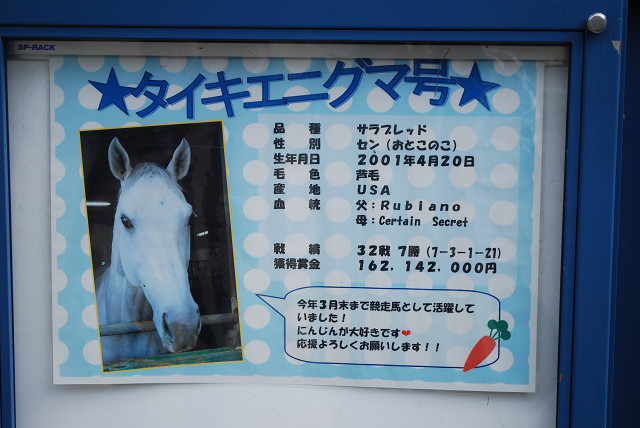 SP-RACK
★タイキエニグマ号★
品種 サラブレッド
性別 セン(おとこのこ)
生年月日 2001年4月20日
毛色 芦毛
産地 USA
血統 父:Rubiano
母:Certain Secret
戦績 32戦 7勝 (7-3-1-21)
獲得賞金 162,142,000円
今年3月末まで競走馬として活躍して
いました!
にんじんが大好きです❤
応援よろしくお願いします!!